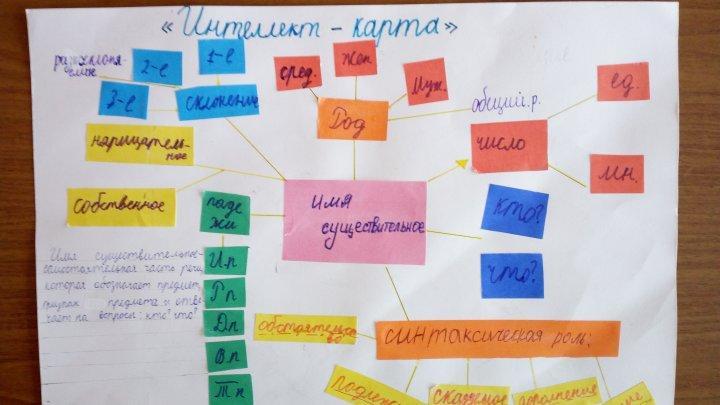 «Интеллект - карта»
разносклоняемое
2-е
1-е
3-е
склонение
сред.
жен
муж.
Род
общий.р.
ед.
число
мн.
нарицатель-
ное
собственное
паде
жи
имя
существительное
кто?
что?
Имя существительное-
самостоятельная часть речи,
которая обозначает предмет,
признак предмета и отве-
чает на вопросы: кто? что?
И.п
Р.п
Д.п
В.п
Т.п
обстоятельс
во
синтаксическая роль:
сказуемое
дополнение